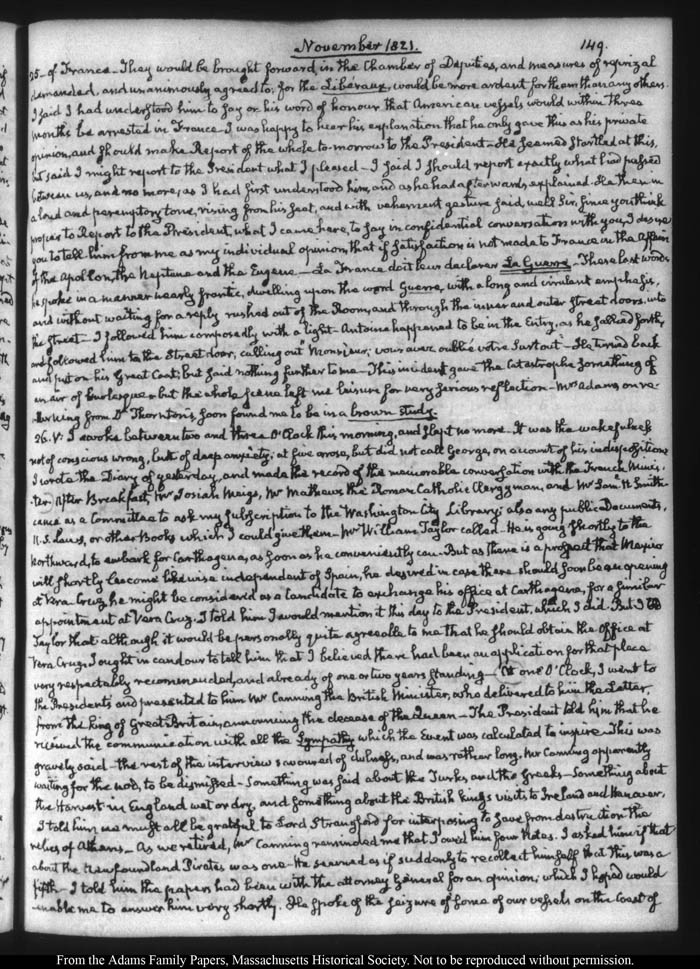 November 1821. 149.
25- of France- They would be brought forward, in the Chamber of Deputies, and measures of reprizal
demanded, and unanimously agreed to; for the Liberaux, would be more ardent for them than any others.
I said I had understood him to say on his word of honour that American vessels would within three
months be arrested in France- I was happy to hear his explanation that he only gave this as his private
opinion, and should make Report of the whole to-morrow to the President- He seemed startled at this,
but said I might report to the President what I pleased- I said I should report exactly what had passed
between us, and no more, as I had first understood him, and as he had afterwards explained. He then in
a loud and peremptory tone, rising from his seat, and with vehement gesture said, well Sir, since you think
proper to Report to the President, what I came here, to say in confidential conversation with you, I desire
you to tell him from me as my individual opinion, that if satisfaction is not made to France in the Affair
of the Apollon, the Neptune and the Eugene- La France doit leur declarer La Guerre- These last words
he spoke in a manner nearly frantic, dwelling upon the word Guerre, with a long and virulent emphasis,
and without waiting for a reply rushed out of the Room, and through the inner and outer street doors, into
the Street- I followed him composedly with a light- Antoine happened to be in the Entry, as he sallied forth,
and followed him to the Street door, calling out "Monsieur, vous avez oublié votre Surtout- He turned back
and put on his Great Coat; but said nothing further to me- This incident gave the Catastrophe something of
an air of burlesque; but the whole scene left me leisure for very serious reflection- Mrs Adams on re-
turning from Dr Thornton's, soon found me to be in a brown study.
26. V: I awoke between two and three O'Clock this morning, and slept no more- It was the wakefulness
not of conscious wrong, but of deep anxiety; at five arose, but did not call George, on account of his indisposition.
I wrote the Diary of yesterday, and made the record of the memorable conversation with the French Minis-
ter. After Breakfast, Mr Josiah Meigs, Mr Mathews the Roman Catholic Clergyman, and Mr Saml H Smith
came as a Committee to ask my subscription to the Washington City Library; also any public Documents,
U.S. Laws, or other Books which I could give them- Mr William Taylor called- He is going shortly to the
Northward, to embark for Carthagena, as soon as he conveniently can- But as there is a prospect that Mexico
will shortly become likewise independent of Spain, he desired in case there should soon be an opening
at Vera Cruz, he might be considered as a Candidate to exchange his office at Carthagena, for a similar
appointment at Vera Cruz. I told him I would mention it this day to the President, which I did. But I told
Taylor that although it would be personally quite agreeable to me that he should obtain the Office at
Vera Cruz, I ought in candour to tell him that I believed there had been an application for that place
very respectably recommended, and already of one or two years standing- At one O'Clock, I went to
the Presidents and presented to him Mr Canning the British Minister, who delivered to him the Letter,
from the king of Great Britain, announcing the decease of the Queen- The President told him that he
received the communication with all the Sympathy which the event was calculated to inspire- This was
gravely said- the rest of the interview savoured of dulness, and was rather long, Mr Canning apparently
waiting for the nod, to be dismissed- Something was said about the Turks, and the Greeks- Something about
the Harvest in England wet or dry, and something about the British king's visits to Ireland and Hanover.
I told him we must all be grateful to Lord Strangford for interposing to save from destruction the
relics of Athens- As we retired, Mr Canning reminded me that I owed him four Notes. I asked him if that
about the Newfoundland Pirates was one- He seemed as if suddenly to recollect himself that this was a
fifth- I told him the papers had been with the attorney General for an opinion; which I hoped would
enable me to answer him very shortly. He spoke of the seizure of some of our vessels on the Coast of
From the Adams Family Papers, Massachusetts Historical Society. Not to be reproduced without permission.